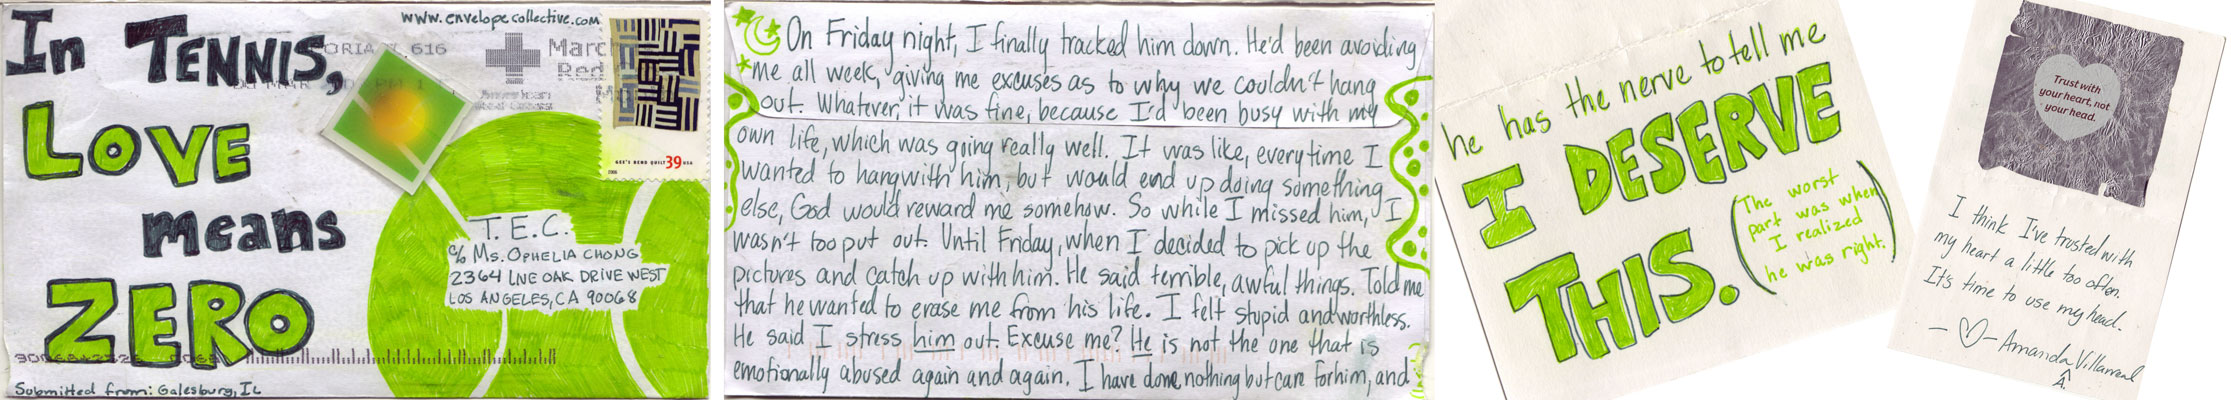 www.envelopecollective.com
In TENNIS,
LOVE
means
ZERO
ORIA 616
06 MAR 2007 PM
March
Red
American
Red Cross
GEE'S BEND QUILT 39 USA
2006
T.E.C.
c/o Ms. OPHELIA CHONG
2364 LIVE OAK DRIVE WEST
LOS ANGELES, CA 90068
Submitted from: Galesburg, IL
On Friday night, I finally tracked him down. He'd been avoiding
me all week, giving me excuses as to why we couldn't hang
out. Whatever, it was fine, because I'd been busy with my
own life, which was going really well. It was like, everytime I
wanted to hang with him, but would end up doing something
else, God would reward me somehow. So while I missed him, I
wasn't too put out. Until Friday, when I decided to pick up the
pictures and catch up with him. He said terrible, awful things. Told me
that he wanted to erase me from his life. I felt stupid and worthless.
He said I stress him out. Excuse me? He is not the one that is
emotionally abused again and again. I have done nothing but care for him, and
he has the nerve to tell me
I DESERVE
THIS.
(The worst
part was when
I realized
he was right.)
Trust with
your heart, not
your head.
I think I've trusted with
my heart a little too often.
It's time to use my head.
- ♡ - Amanda Villarreal
A.